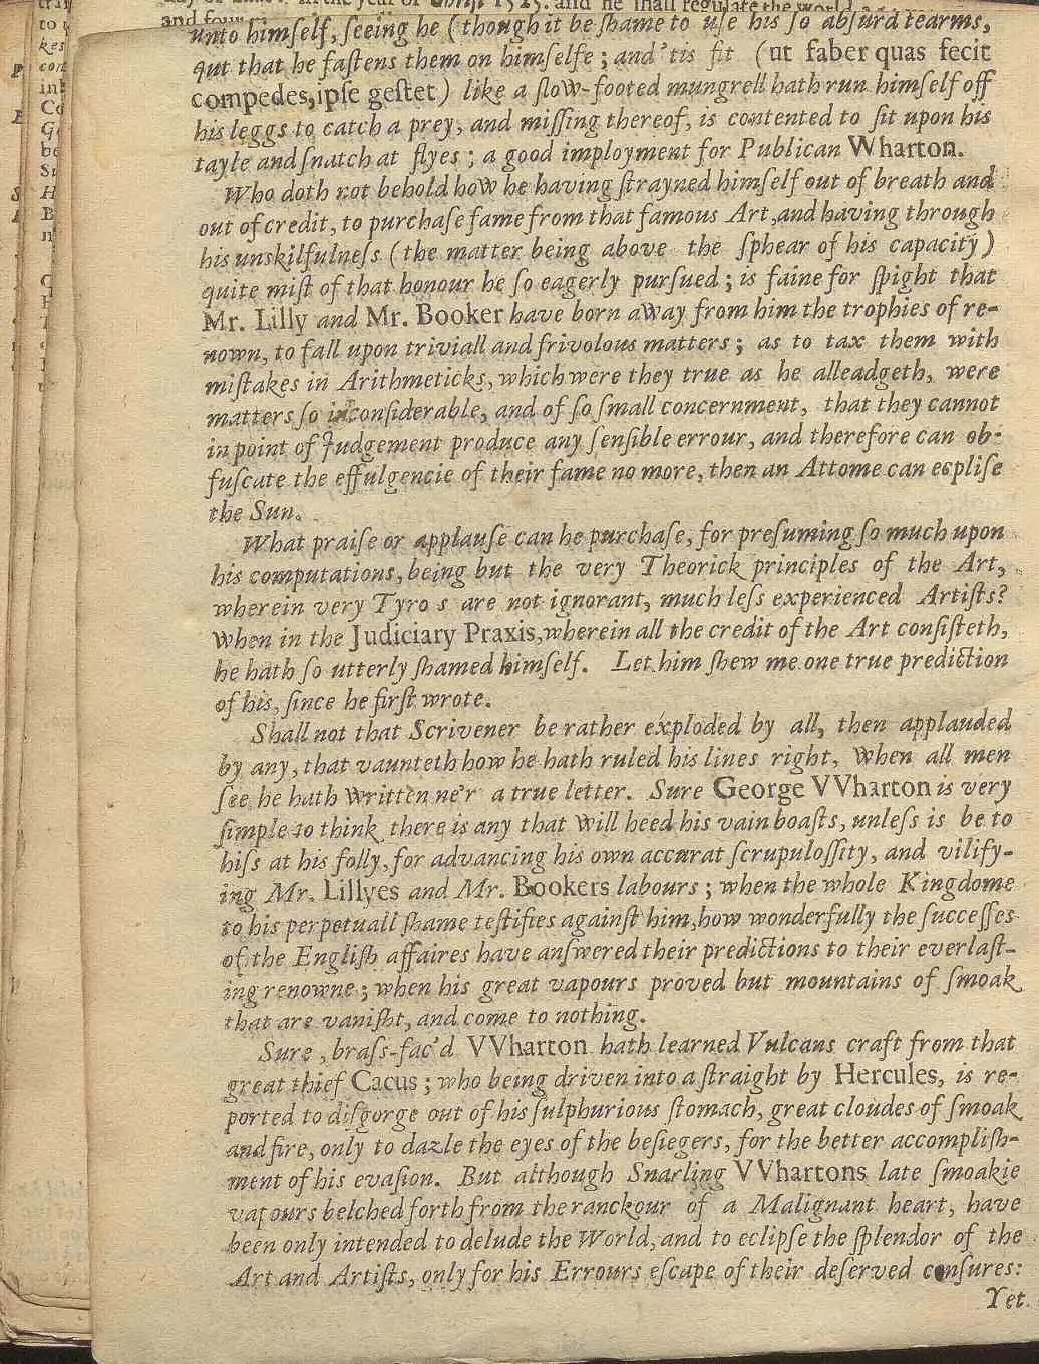 unto himſelf, ſeeing he (though it be ſhame to uſe his ſo abſurd tearms,
qut that he faſtens them on himſelfe; and 'tis fit (ut faber quas fecit
compedes, ipſe geſtet) like a ſlow-footed mungrell hath run himſelf off
his leggs to catch a prey, and miſſing thereof, is contented to ſit upon his
tayle and ſnatch at flyes; a good imployment for Publican Wharton.
Who doth not behold how he having ſtrayned himſelf out of breath and
out of credit, to purchaſe fame from that famous Art, and having through
his unskilfulneſs (the matter being above the ſphear of his capacity)
quite miſt of that honour he ſo eagerly purſued; is faine for ſpight that
Mr. Lilly and Mr. Booker have born away from him the trophies of re-
nown, to fall upon triviall and frivolous matters; as to tax them with
miſtakes in Arithmeticks, which were they true as he alleadgeth, were
matters ſo inconſiderable, and of ſo ſmall concernment, that they cannot
in point of Judgement produce any ſenſible errour, and therefore can ob-
fuſcate the effulgencie of their fame no more, then an Attome can ecpliſe
the Sun.
What praiſe or applauſe can he purchaſe, for preſuming ſo much upon
his computations, being but the very Theorick principles of the Art,
wherein very Tyro s are not ignorant, much leſs experienced Artiſts?
When in the Judiciary Praxis, wherein all the credit of the Art conſiſteth,
he hath ſo utterly ſhamed himſelf. Let him ſhew me one true prediction
of his, ſince he firſt wrote.
Shall not that Scrivener be rather exploded by all, then applauded
by any, that vaunteth how he hath ruled his lines right, When all men
ſee he hath Written ne'r a true letter. Sure George VVharton is very
ſimple to think there is any that Will heed his vain boaſts, unleſs is be to
hiſs at his folly, for advancing his own accurat ſcrupuloſſity, and vilify-
ing Mr. Lillyes and Mr. Bookers labours; when the whole Kingdome
to his perpetuall ſhame teſtifies againſt him, how wonderfully the ſucceſſes
of the Engliſh affaires have anſwered their predictions to their everlaſt-
ing renowne; when his great vapours proved but mountains of ſmoak
that are vaniſht, and come to nothing.
Sure, braſs-fac'd VVharton hath learned Vulcans craft from that
great thief Cacus; who being driven into a ſtraight by Hercules, is re-
ported to diſgorge out of his ſulphurious ſtomach, great cloudes of ſmoak
and fire, only to dazle the eyes of the beſiegers, for the better accompliſh-
ment of his evaſion. But although Snarling VVhartons late ſmoakie
vapours belched forth from the ranckour of a Malignant heart, have
been only intended to delude the World, and to eclipſe the ſplendor of the
Art and Artiſts, only for his Errours eſcape of their deſerved cenſures:
Yet